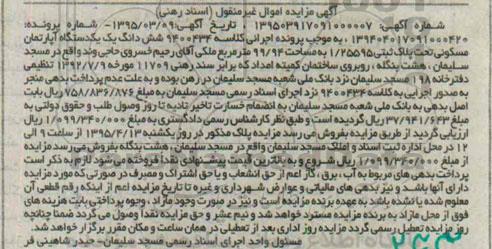 آگهی مزایده اموال غیرمنقول (اسناد رهنی)
شماره آگهی: ۱۳۹۵۰۳۹۱۷۰۹۱۰۰۰۰۰۷ تاریخ آگهی: ۱۳۹۵/۰۳/۰۹ شماره پرونده:
۱۳۹۴۰۴۰۱۷۰۹۱۰۰۰۴۲۰، به موجب پرونده اجرائی کلاسه ۹۴۰۰۴۳۴ شش دانگ یک یکدستگاه آپارتمان
مسکونی تحت پلاک ثبتی ۱/۲۵۵۹۵ به مساحت ۹۴/۹۹ مترمربع ملکی آقای رحیم خسروی حاجی وند واقع در مسجد
سلیمان، هشت بنگله، روبروی ساختمان کمیته امداد که برابر سند رهنی ۱۱۷۰۹ مورخه ۱۳۹۲/۷/۹ تنظیمی
دفترخانه ۱۹۸ مسجد سلیمان نزد بانک ملی شعبه مسجد سلیمان در رهن بوده و به علت عدم پرداخت بدهی منجر
به صدور اجرایی به کلاسه ۹۴۰۰۴۳۴ نزد اجرای اسناد رسمی مسجد سلیمان به مبلغ ۷۵۸/۸۳۶/۸۷۶ ریال بابت
اصل بدهی به بانک ملی شعبه مسجد سلیمان به انضمام خسارت تاخیر تادیه تا روز وصول طلب و حقوق دولتی به
مبلغ ۳۷/۹۴۱/۶۴۳ ریال گردیده است و طبق نظر کارشناس رسمی دادگستری به مبلغ ۱/۰۹۹/۳۴۰/۰۰۰ ریال
ارزیابی گردید از طریق مزایده بفروش می رسد مزایده پلاک مذکور در روز یکشنبه ۱۳۹۵/۴/۱۳ از ساعت ۹ الی
۱۲ در محل اداره ثبت اسناد و املاک مسجد سلیمان واقع در مسجد سلیمان، هشت بنگله بفروش می رسد مزایده
از مبلغ ۱/۰۹۹/۳۴۰/۰۰۰ ریال شروع و به بالاترین قیمت پیشنهادی نقدا فروخته می شود لازم به ذکر است
پرداخت بدهی های مربوط به آب، برق، گاز اعم از حق انشعاب و یا حق اشتراک و مصرف در صورتی که مورد مزایده
دارای آنها باشد و نیز بدهی های مالیاتی و عوارض شهرداری و غیره تا تاریخ مزایده اعم از اینکه رقم قطعی آن
معلوم شده یا نشده باشد به عهده برنده مزایده است و نیز در صورت وجود مازاد، وجوه پرداختی بابت هزینه های
فوق از محل مازاد به برنده مزایده مسترد خواهد شد و نیم عشر و حق مزایده نقدا وصول می گردد ضمنا چنانچه
روز مزایده تعطیل رسمی گردد مزایده روز اداری بعد از تعطیلی در همان ساعت و مکان مقرر برگزار خواهد شد.
مسئول واحد اجرای اسناد رسمی مسجد سلیمان- حیدر شاهینی فر